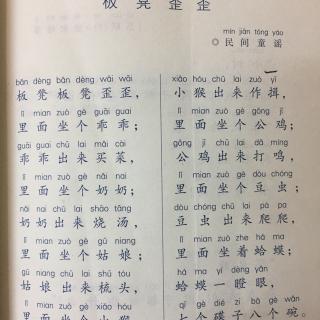 板凳歪歪
mín jiān tóng yáo
◎民间童谣
bǎn dèng bǎn dèng wāi wāi
板凳板凳歪歪，
lǐ mian zuò gè guāi guai
里面坐个乖乖；
guāi guai chū lai mǎi cài
乖乖出来买菜，
lǐ mian zuò gè nǎi nai
里面坐个奶奶；
nǎi nai chū lai shāo tāng
奶奶出来烧汤，
lǐ mian zuò gè gū niang
里面坐个姑娘；
gū niang chū lai shū tóu
姑娘出来梳头，
lǐ mian zuò gè xiǎo hóu
里面坐个小猴
xiǎo hóu chū lai zuò yī
小猴出来作揖，
lǐ mian zuò gè gōng jī
里面坐个公鸡；
gōng jī chū lai dǎ míng
公鸡出来打鸣，
lǐ mian zuò gè dòu chóng
里面坐个豆虫；
dòu chóng chū lai pá pá
豆虫出来爬爬，
lǐ mian zuò zhe há ma
里面坐着蛤蟆；
há ma yí dèng yǎn
蛤蟆一瞪眼，
qī gè dié zi bā gè wǎn
七个碟子八个碗。